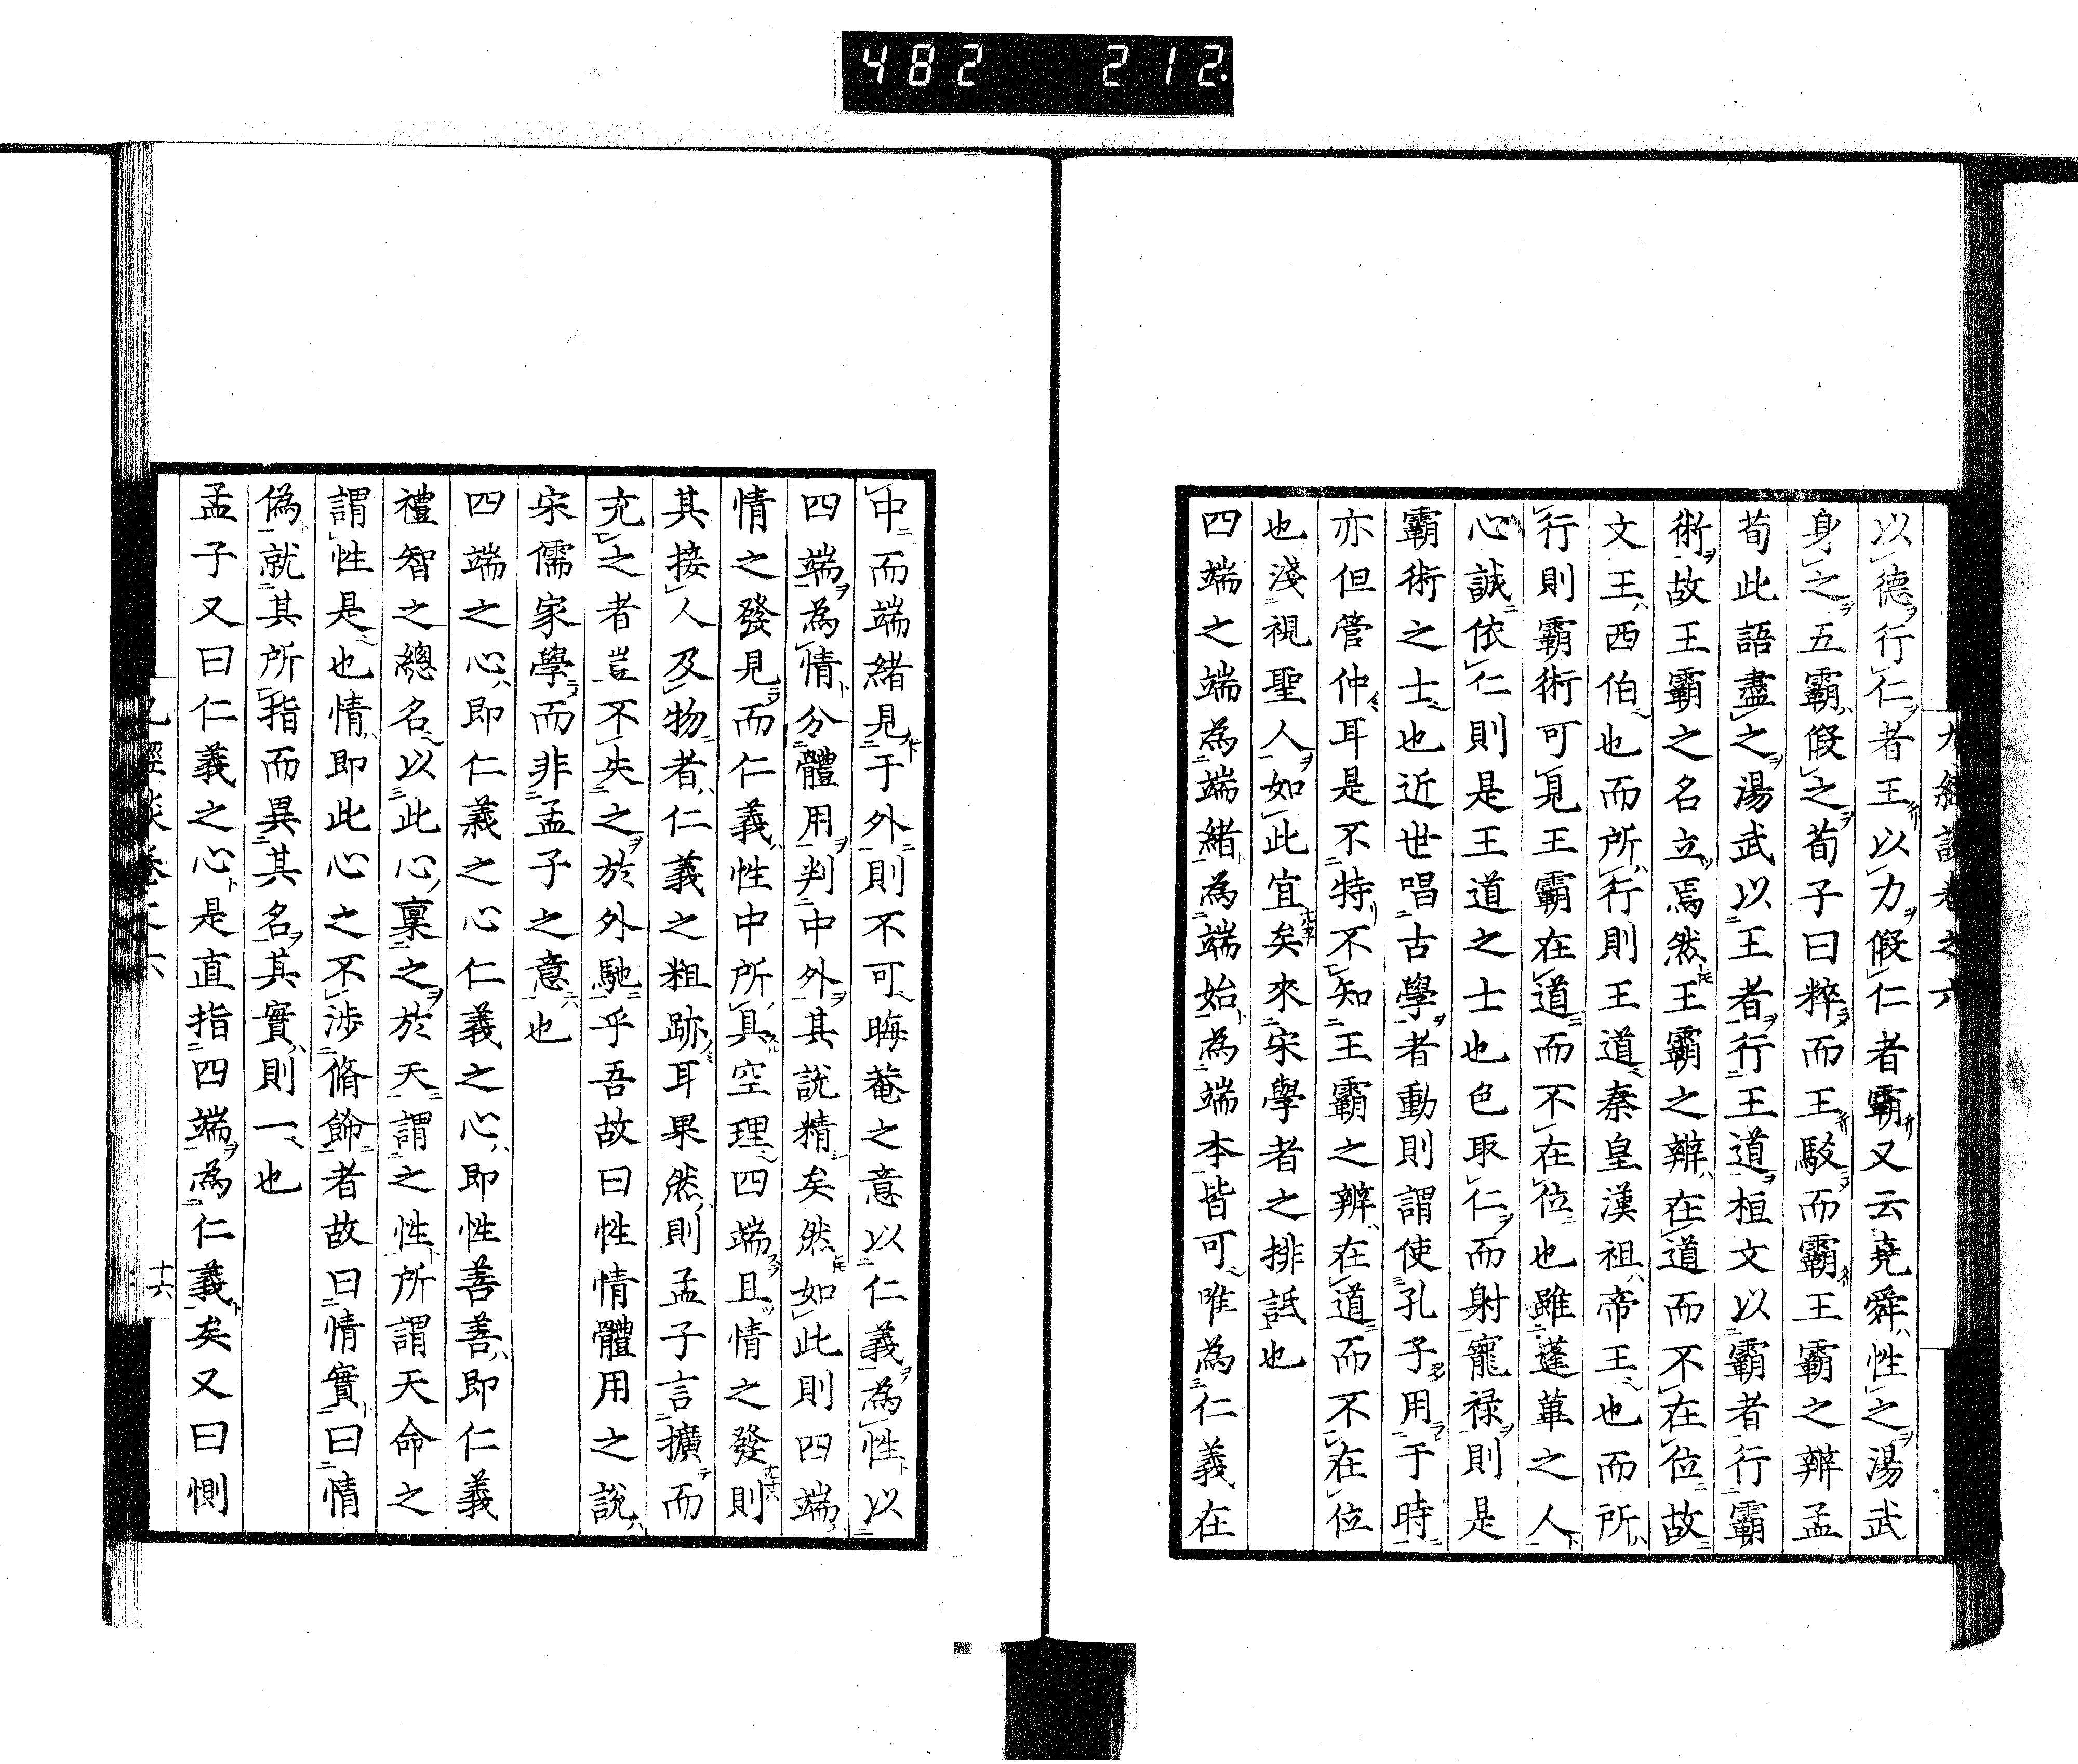 482 212
九經談卷之六
以德行仁者王以力假仁者霸又云堯舜性之湯武
身之五霸假之荀子曰粹而王駁而霸王霸之辨孟
荀此語盡之湯武以王者行王道桓文以霸者行霸
術故王霸之名立焉然王霸之辨在道而不在位故
文王西伯也而所行則王道秦皇漢祖帝王也而所
行則霸術可見王霸在道而不在位也雖蓬蓽之人
心誠依仁則是王道之士也色取仁而射寵祿則是
霸術之士也近世唱古學者動則謂使孔子用于時
亦但管仲耳是不特不知王霸之辨在道而不在位
也淺視聖人如此宜矣來宋學者之排詆也
四端之端為端緒為端始為端本皆可唯為仁義在
中而端緒見于外則不可晦菴之意以仁義為性以
四端為情分體用判中外其說精矣然如此則四端
情之發見而仁義性中所具空理四端且情之發則
其接人及物者仁義之粗跡耳果然則孟子言擴而
充之者豈不失之於外馳乎吾故曰性情體用之說
宋儒家學而非孟子之意也
四端之心即仁義之心仁義之心即性善善即仁義
禮智之總名以此心稟之於天謂之性所謂天命之
謂性是也情即此心之不涉脩飾者故曰情實曰情
偽就其所指而異其名其實則一也
孟子又曰仁義之心是直指四端為仁義矣又曰惻
九經談卷之六 十六